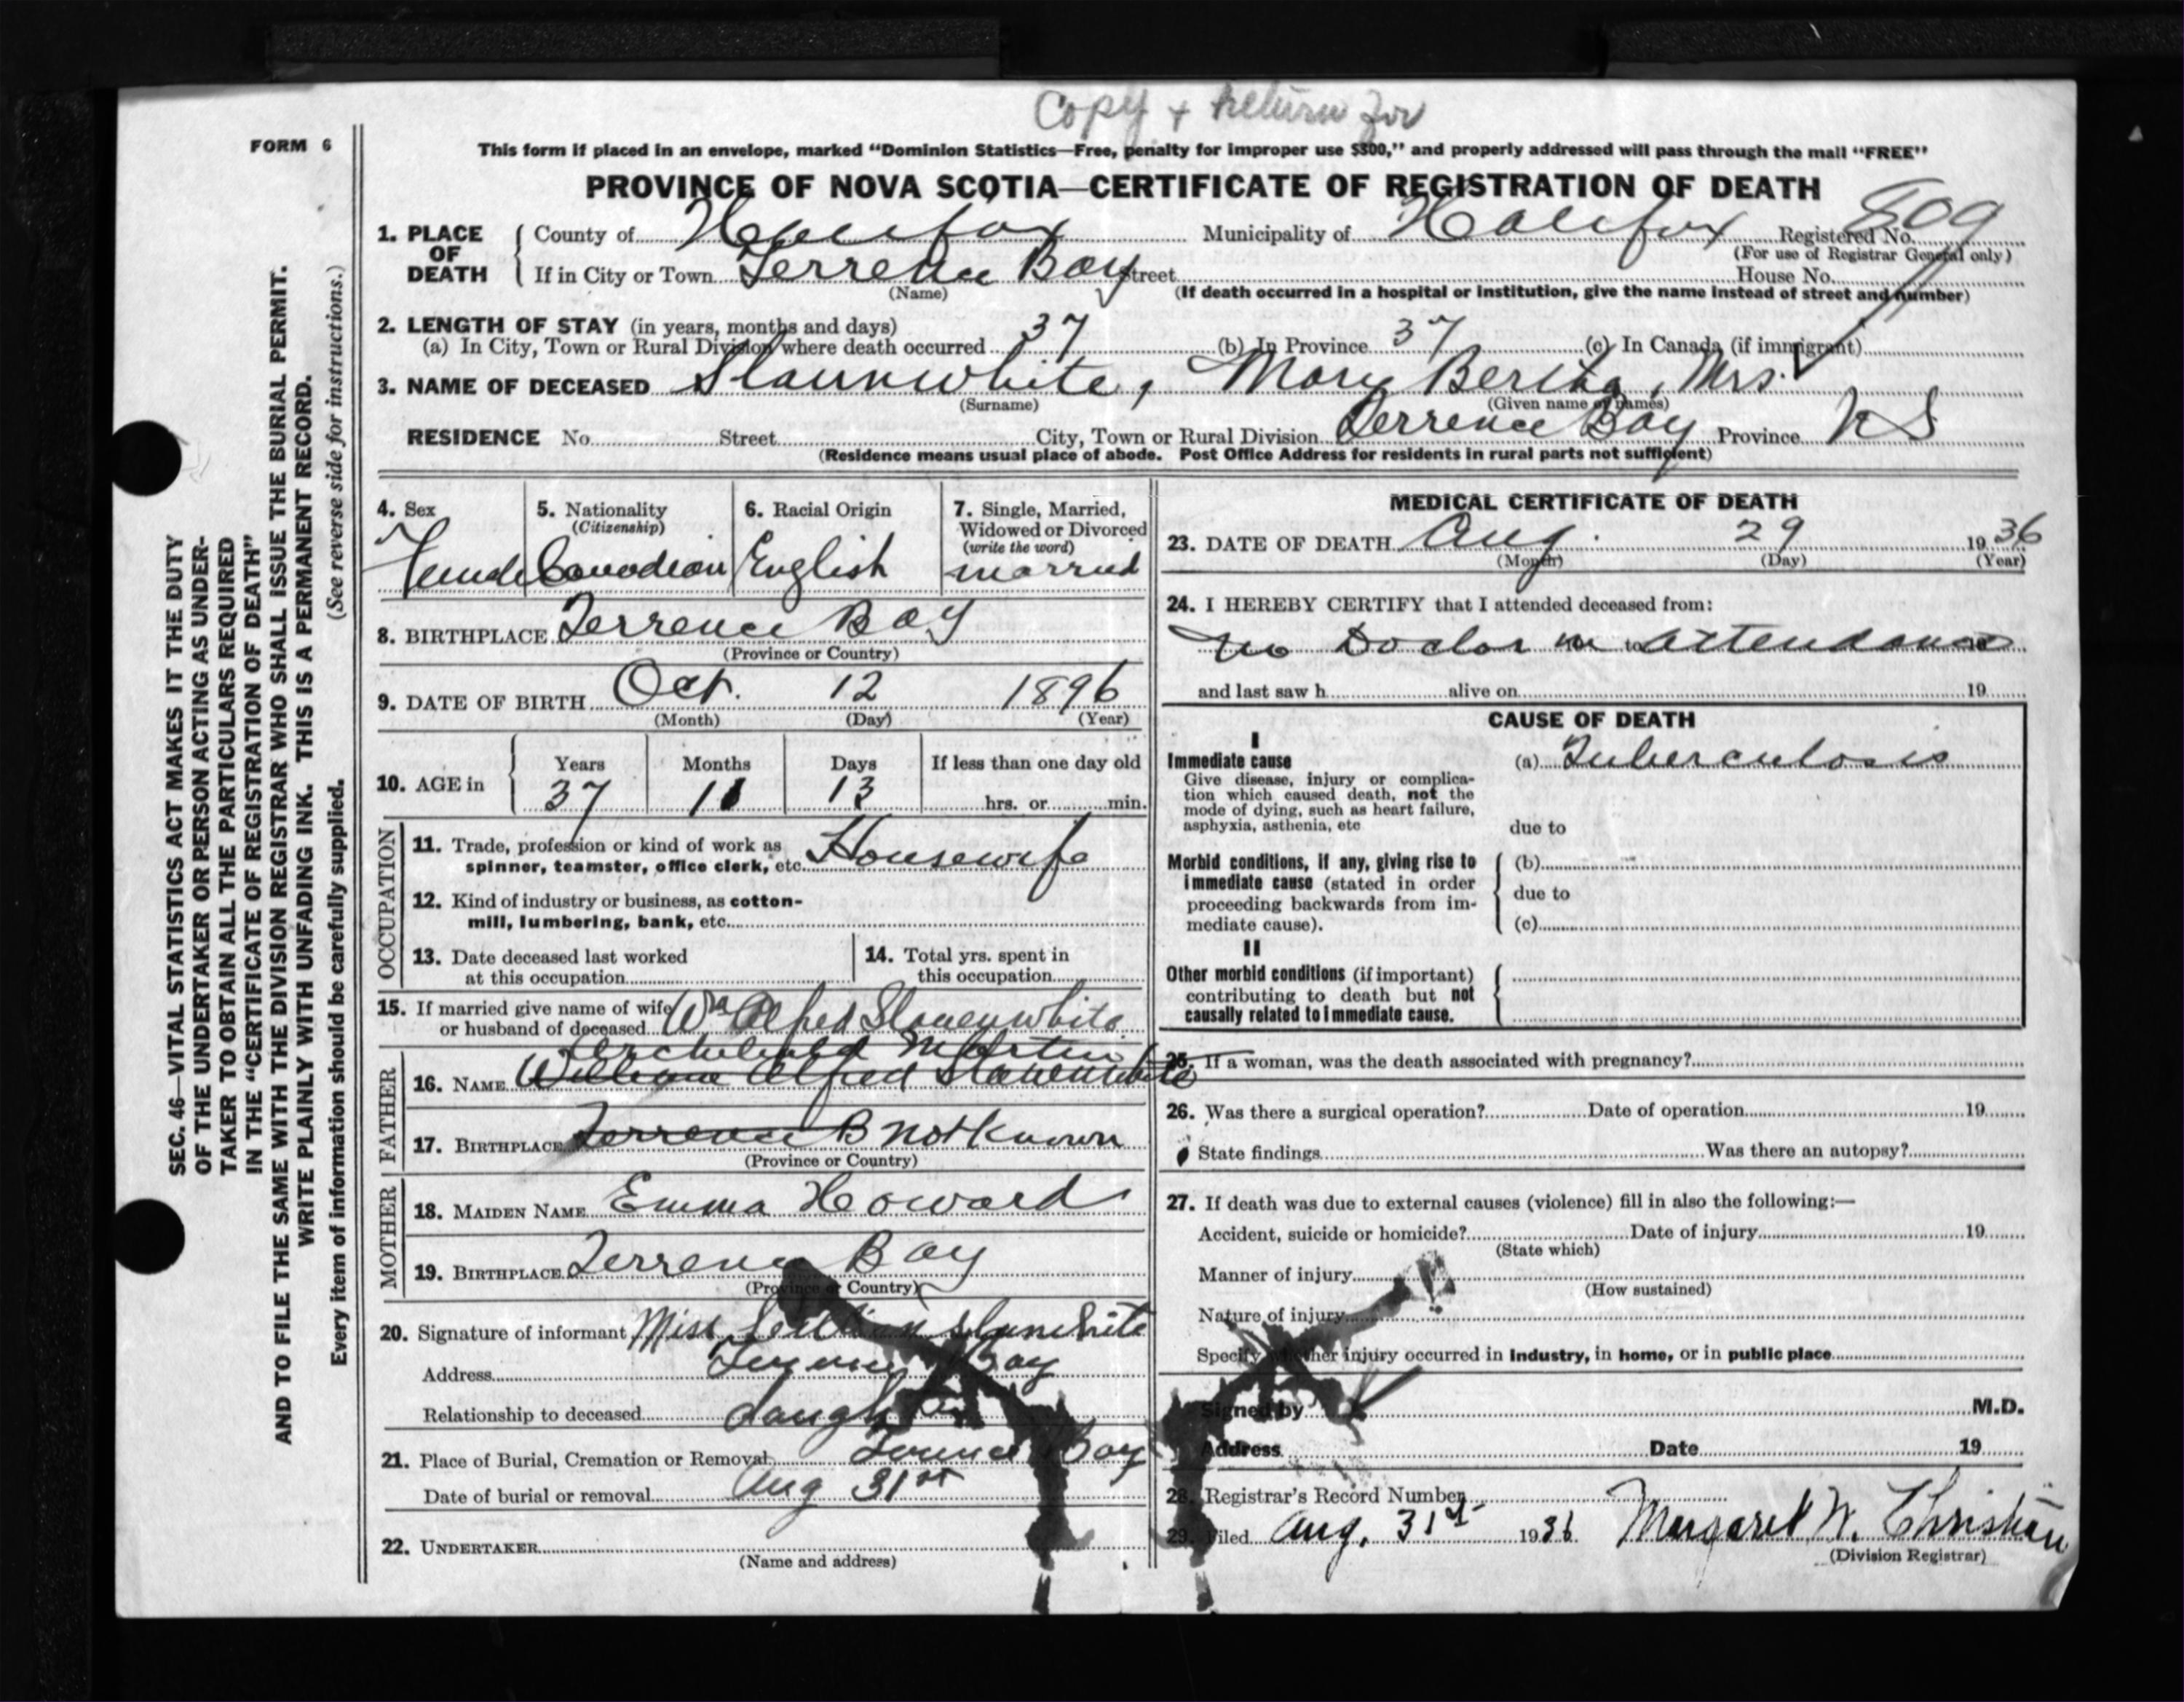 Copy + Return for
FORM 6
This form if placed in an envelope, marked "Dominion Statistics—Free, penalty for improper use $300," and properly addressed will pass through the mail "FREE"
PROVINCE OF NOVA SCOTIA—CERTIFICATE OF REGISTRATION OF DEATH
1. PLACE OF DEATH { County of Halifax Municipality of Halifax Registered No. 809
(For use of Registrar General only)
If in City or Town Terrence Bay Street House No.
(Name) (If death occurred in a hospital or institution, give the name instead of street and number)
2. LENGTH OF STAY (in years, months and days)
(a) In City, Town or Rural Division where death occurred 37 (b) In Province 37 (c) In Canada (if immigrant)
3. NAME OF DECEASED Slaunwhite, Mary Bertha, Mrs.
(Surname) (Given name or names)
RESIDENCE No. Street City, Town or Rural Division Terrence Bay Province N S
(Residence means usual place of abode. Post Office Address for residents in rural parts not sufficient)
4. Sex 5. Nationality (Citizenship) 6. Racial Origin 7. Single, Married, Widowed or Divorced (write the word)
Female Canadian English married
8. BIRTHPLACE Terrence Bay
(Province or Country)
9. DATE OF BIRTH Oct. 12 1896
(Month) (Day) (Year)
10. AGE in { Years Months Days If less than one day old
37 11 13 hrs. or min.
OCCUPATION
11. Trade, profession or kind of work as spinner, teamster, office clerk, etc. Housewife
12. Kind of industry or business, as cotton-
mill, lumbering, bank, etc.
13. Date deceased last worked at this occupation
14. Total yrs. spent in this occupation
15. If married give name of wife or husband of deceased Wm Alfred Slauenwhite
FATHER
Archibald Martin
16. NAME William Alfred Slauenwhite
17. BIRTHPLACE Terrence B not known
(Province or Country)
MOTHER
18. MAIDEN NAME Emma Howard
19. BIRTHPLACE Terrence Bay
(Province or Country)
20. Signature of informant Miss Slaunwhite
Address Terrence Bay
Relationship to deceased daughter
21. Place of Burial, Cremation or Removal Terrence Bay
Date of burial or removal Aug 31st
22. UNDERTAKER
(Name and address)
MEDICAL CERTIFICATE OF DEATH
23. DATE OF DEATH Aug. 29 1936
(Month) (Day) (Year)
24. I HEREBY CERTIFY that I attended deceased from:
No Doctor in attendance
and last saw h alive on 19
CAUSE OF DEATH
I
Immediate cause (a) Tuberculosis
Give disease, injury or complica-
tion which caused death, not the
mode of dying, such as heart failure,
asphyxia, asthenia, etc due to
Morbid conditions, if any, giving rise to { (b)
immediate cause (stated in order due to
proceeding backwards from im-
mediate cause). (c)
II
Other morbid conditions (if important)
contributing to death but not
causally related to immediate cause.
25. If a woman, was the death associated with pregnancy?
26. Was there a surgical operation? Date of operation 19
State findings Was there an autopsy?
27. If death was due to external causes (violence) fill in also the following:—
Accident, suicide or homicide? Date of injury 19
(State which)
Manner of injury
(How sustained)
Nature of injury
Specify whether injury occurred in industry, in home, or in public place
Signed by M.D.
Address Date 19
28. Registrar's Record Number
29. Filed Aug. 31st 1936 Margaret W. Christian
(Division Registrar)
SEC. 46—VITAL STATISTICS ACT MAKES IT THE DUTY
OF THE UNDERTAKER OR PERSON ACTING AS UNDER-
TAKER TO OBTAIN ALL THE PARTICULARS REQUIRED
IN THE "CERTIFICATE OF REGISTRATION OF DEATH"
AND TO FILE THE SAME WITH THE DIVISION REGISTRAR WHO SHALL ISSUE THE BURIAL PERMIT.
WRITE PLAINLY WITH UNFADING INK. THIS IS A PERMANENT RECORD.
Every item of information should be carefully supplied. (See reverse side for instructions.)